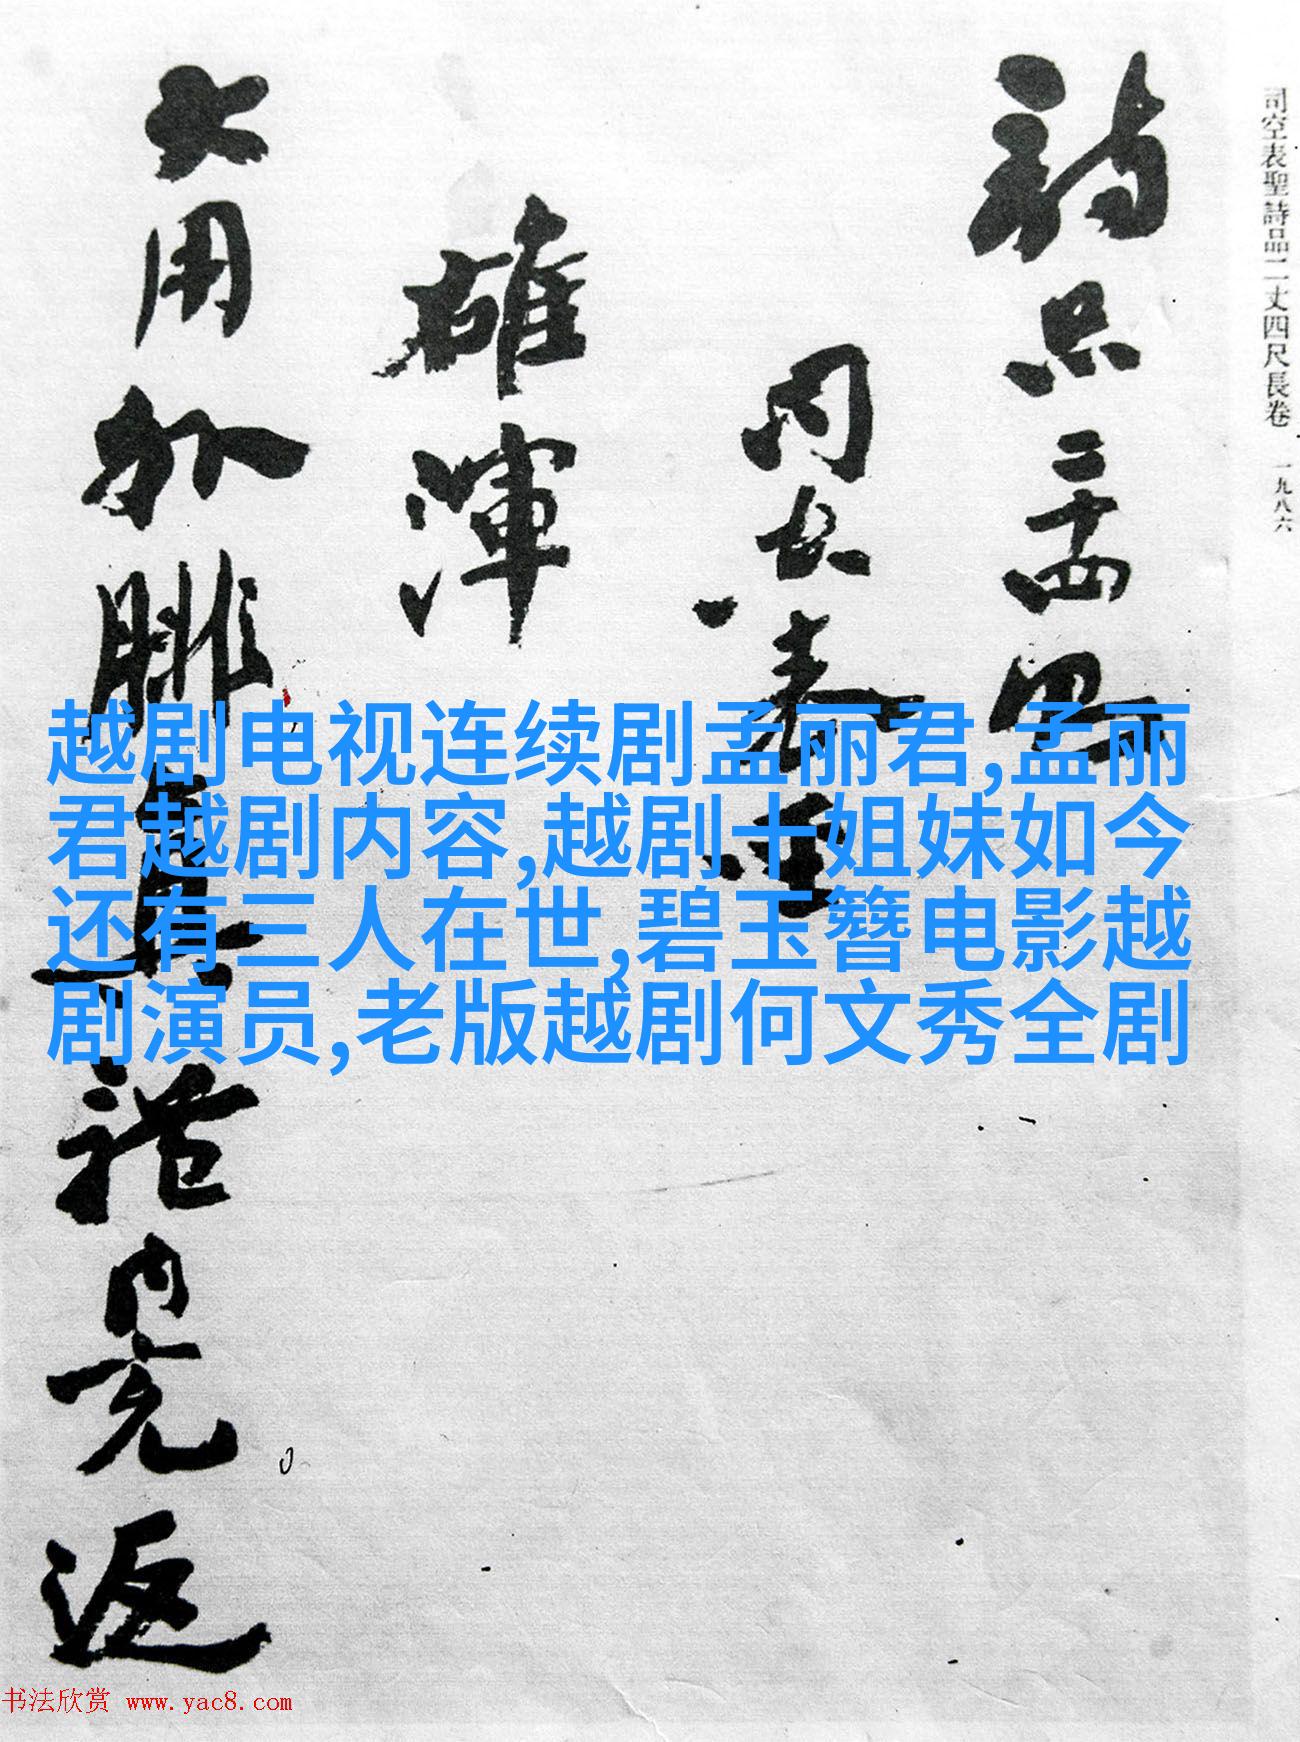 司空表聖詩品二丈四尺長卷 一九八六
詩品二十四
司空表聖
雄渾
大用外腓真體內充返
越剧电视连续剧孟丽君,孟丽
君越剧内容,越剧十姐妹如今
还有三人在世,碧玉簪电影越
剧演员,老版越剧何文秀全剧
书法欣赏 www.yac8.com